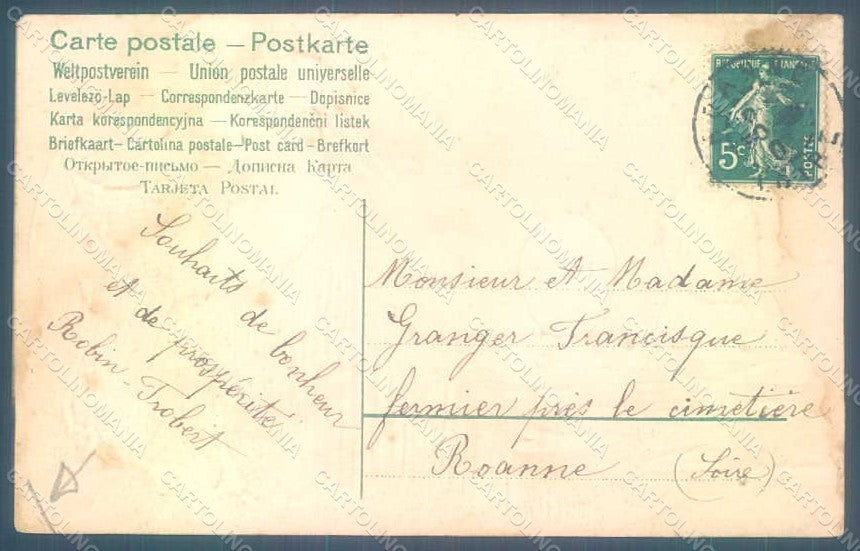 Carte postale — Postkarte
Weltpostverein — Union postale universelle
Levelezö-Lap — Correspondenzkarte — Dopisnice
Karta korespondencyjna — Korespondenční listek
Briefkaart — Cartolina postale — Post card — Brefkort
Открытое-письмо — Дописна Карта
Tarjeta Postal
RÉPUBLIQUE FRANÇAISE
5c
POSTES
Souhaits de bonheur
et de prospérité
Robin-Trobert
Monsieur et Madame
Granger Francisque
fermier près le cimetière
Roanne (Loire)
CARTOLINOMANIA